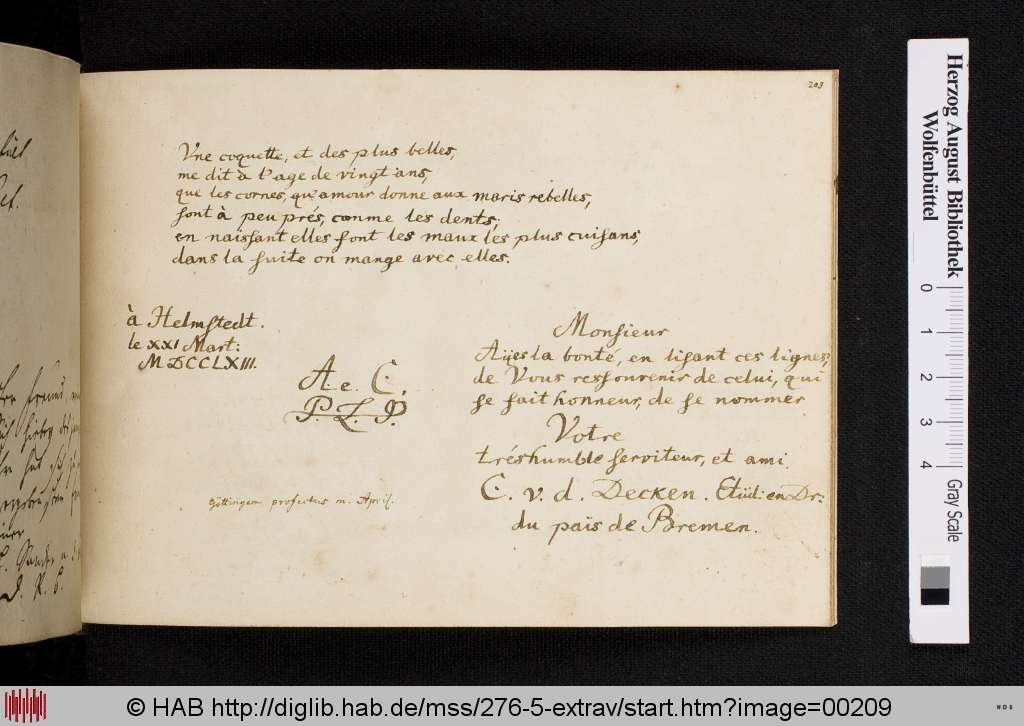 203
Vne coquette, et des plus belles,
me dit à l'age de vingt ans,
que les cornes, qu'amour donne aux maris rebelles,
sont à peu prés, comme les dents;
en naissant elles sont les maux les plus cuisans,
dans la suite on mange avec elles.
à Helmstedt.
le XXI Mart:
MDCCLXIII.
A. e. C.
P. L. P.
Göttingam profectus m. April.
Monsieur
Ayes la bonté, en lisant ces lignes,
de Vous ressouvenir de celui, qui
se fait honneur, de se nommer
Votre
tréshumble serviteur, et ami
C. v. d. Decken. Etüd: en Dr:
du païs de Bremen.
Herzog August Bibliothek
Wolfenbüttel
0 1 2 3 4 Gray Scale
© HAB http://diglib.hab.de/mss/276-5-extrav/start.htm?image=00209